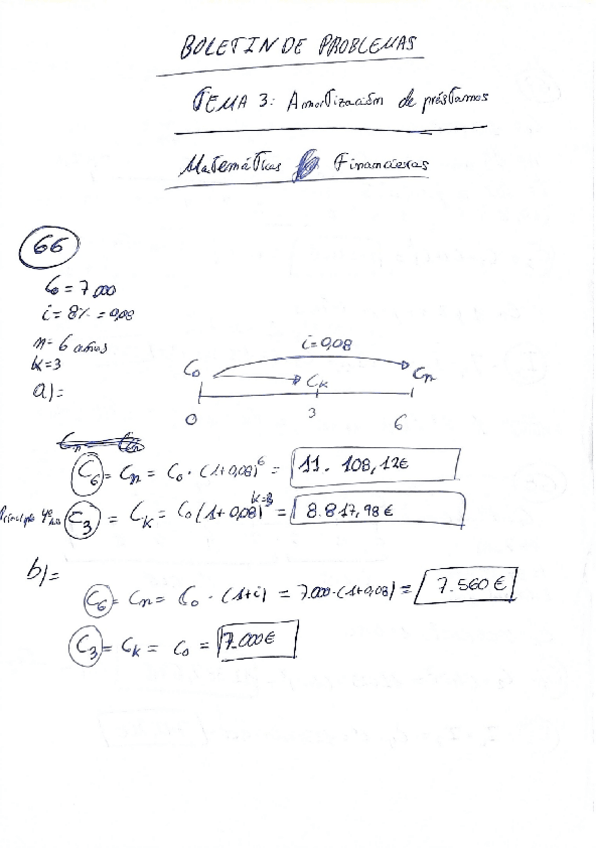 BOLETIN DE PROBLEMAS
TEMA 3: Amortización de préstamos
Matemáticas Financieras
66
C₀ = 7.000
i = 8% = 0,08
n = 6 años
k = 3
a) =
i = 0,08
C₀ Cₖ Cₙ
0 3 6
C₆ = Cₙ = C₀ · (1+0,08)⁶ = 11.108,12€
Principio 4º año C₃ = Cₖ = C₀ (1+0,08)ᵏ⁼³ = 8.817,98€
b) =
C₆ = Cₙ = C₀ · (1+i) = 7.000 · (1+0,08) = 7.560€
C₃ = Cₖ = C₀ = 7.000€